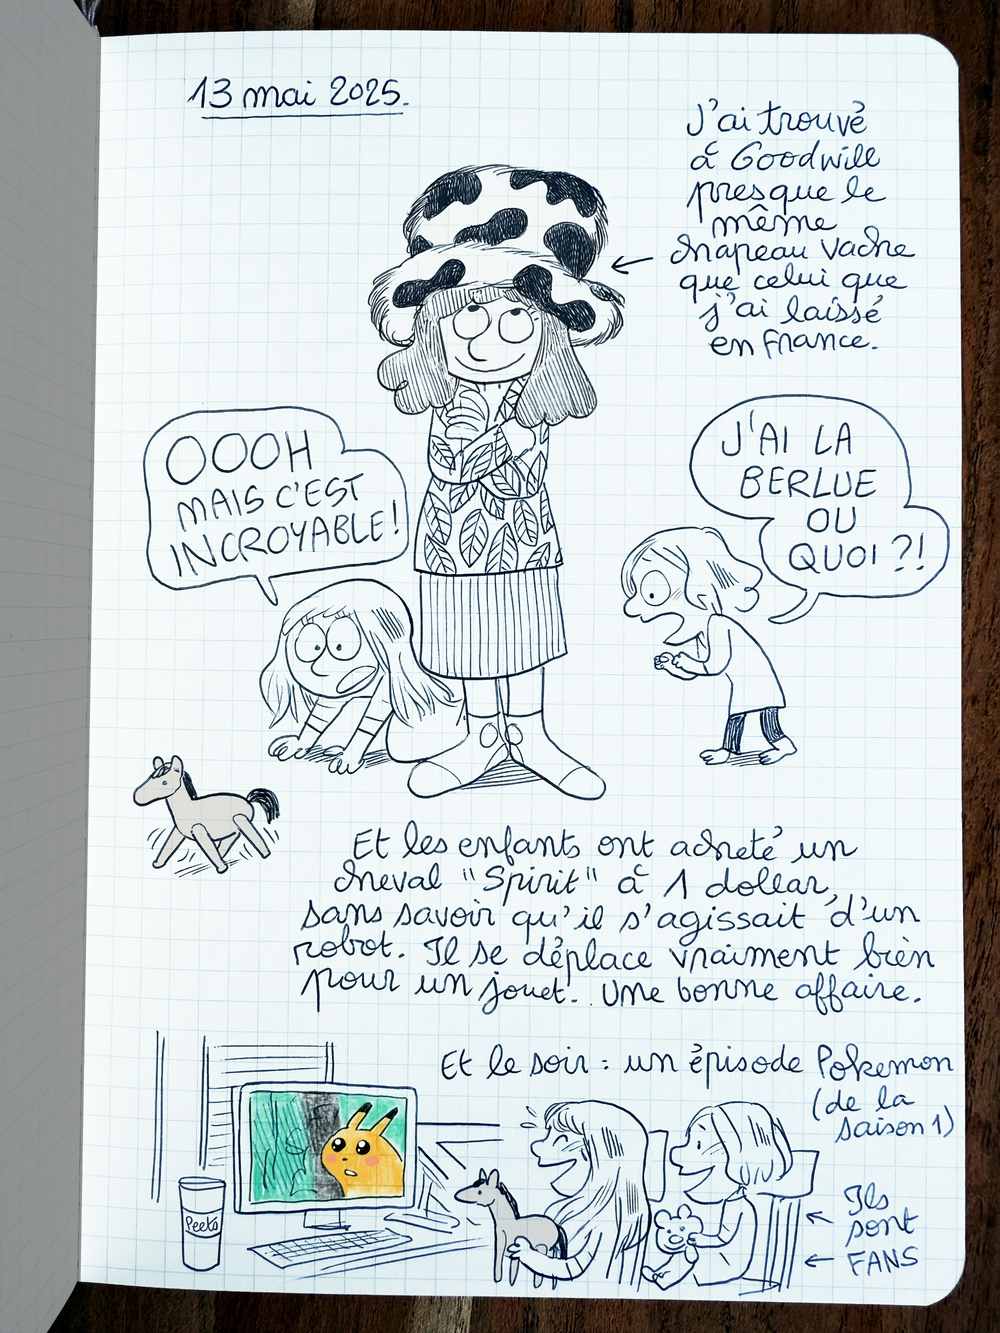 13 mai 2025.
J'ai trouvé
à Goodwill
presque le
même
chapeau vache
que celui que
j'ai laissé
en France.
OOOH
MAIS C'EST
INCROYABLE!
J'AI LA
BERLUE
OU
QUOI ?!
Et les enfants ont acheté un
cheval "Spirit" à 1 dollar,
sans savoir qu'il s'agissait d'un
robot. Il se déplace vraiment bien
pour un jouet. Une bonne affaire.
Et le soir : un épisode Pokemon
(de la
saison 1)
Peets
Ils
sont
FANS